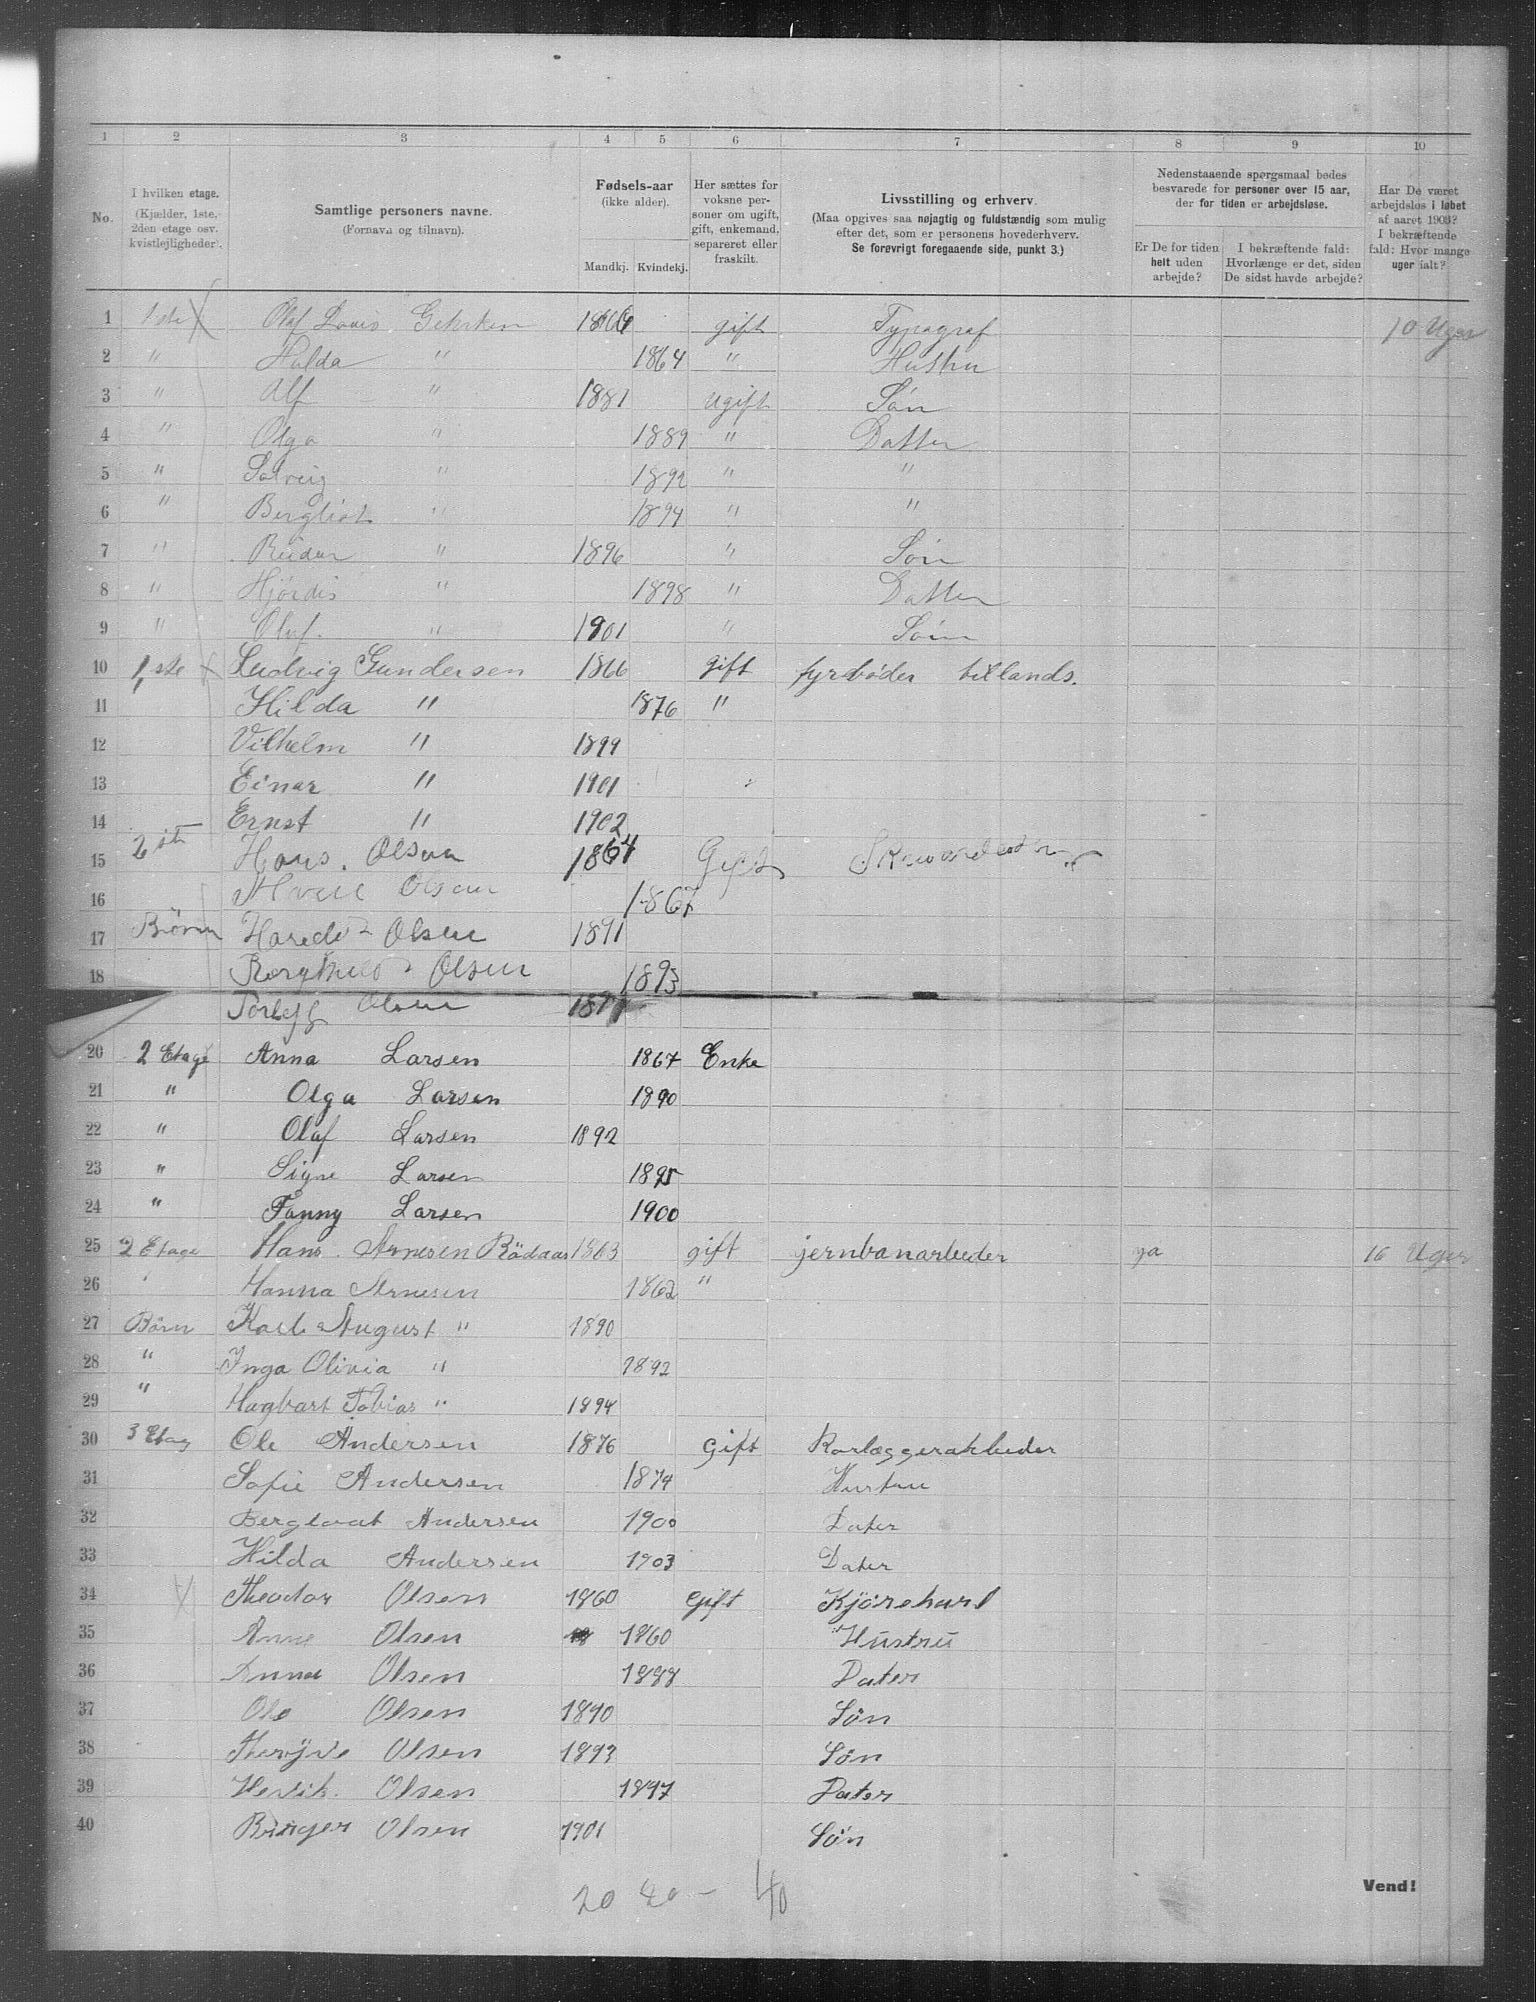 1 2 3 4 5 6 7 8 9 10
No. I hvilken etage. (Kjælder, 1ste, 2den etage osv. kvistlejligheder). Samtlige personers navne. (Fornavn og tilnavn). Fødsels-aar (ikke alder). Mandkj. Kvindekj. Her sættes for voksne personer om ugift, gift, enkemand, separeret eller fraskilt. Livsstilling og erhverv. (Maa opgives saa nøjagtig og fuldstændig som mulig efter det, som er personens hovederhverv. Se forøvrigt foregaaende side, punkt 3.) Nedenstaaende spørgsmaal bedes besvarede for personer over 15 aar, der for tiden er arbejdsløse. Er De for tiden helt uden arbejde? I bekræftende fald: Hvorlænge er det, siden De sidst havde arbejde? Har De været arbejdsløs i løbet af aaret 1903? I bekræftende fald: Hvor mange uger ialt?
1 1ste Olaf Louis Gehrken 1866 gift Typograf 10 Uger
2 " Hulda " 1864 " Hustru
3 " Alf " 1881 ugift Søn
4 " Olga " 1889 " Datter
5 " Solveig " 1892 " "
6 " Bergliot " 1894 " "
7 " Reidar " 1896 " Søn
8 " Hjørdis " 1898 " Datter
9 " Oluf " 1901 " Søn
10 1ste Ludvig Gundersen 1866 gift fyrbøder tillands.
11 Hilda " 1876 "
12 Vilhelm " 1899
13 Einar " 1901
14 Ernst " 1902
15 2 Hans. Olsen 1864 Gift
16 Olsen 1867
17 Børn Olsen 1891
18 Borghild Olsen 1893
Olsen
20 2 Etage Anna Larsen 1867 Enke
21 " Olga Larsen 1890
22 " Olaf Larsen 1892
23 " Signe Larsen 1895
24 " Fanny Larsen 1900
25 2 Etage Hans Arnesen Rödaas 1863 gift jernbanarbeder ja 16 Uger
26 Hanna Arnesen 1862 "
27 Börn Karl August " 1890
28 " Inga Olivia " 1892
29 " Hagbart Tobias " 1894
30 3 Etag Ole Andersen 1876 gift Rorlæggerarbeider
31 Sofie Andersen 1874 Hustru
32 Andersen 1900 Dater
33 Hilda Andersen 1903 Dater
34 Theodor Olsen 1860 gift Kjörekarl
35 Anne Olsen 1860 Hustru
36 Anna Olsen 1888 Dater
37 Ole Olsen 1890 Sön
38 Olsen 1893 Sön
39 Olsen 1897 Dater
40 Birger Olsen 1901 Sön
20 20 - 40
Vend!